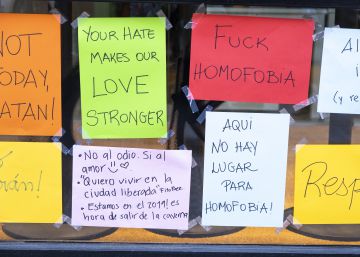 NOT
TODAY,
SATAN!
YOUR HATE
MAKES OUR
LOVE
STRONGER
FUCK
HOMOFOBIA
(y re
• No al odio. Si al
amor
• "Quiero vivir en la
ciudad liberada"
• Estamos en el 2019! es
hora de salir de la caverna
AQUI
NO HAY
LUGAR
PARA
HOMOFOBIA!
Resp